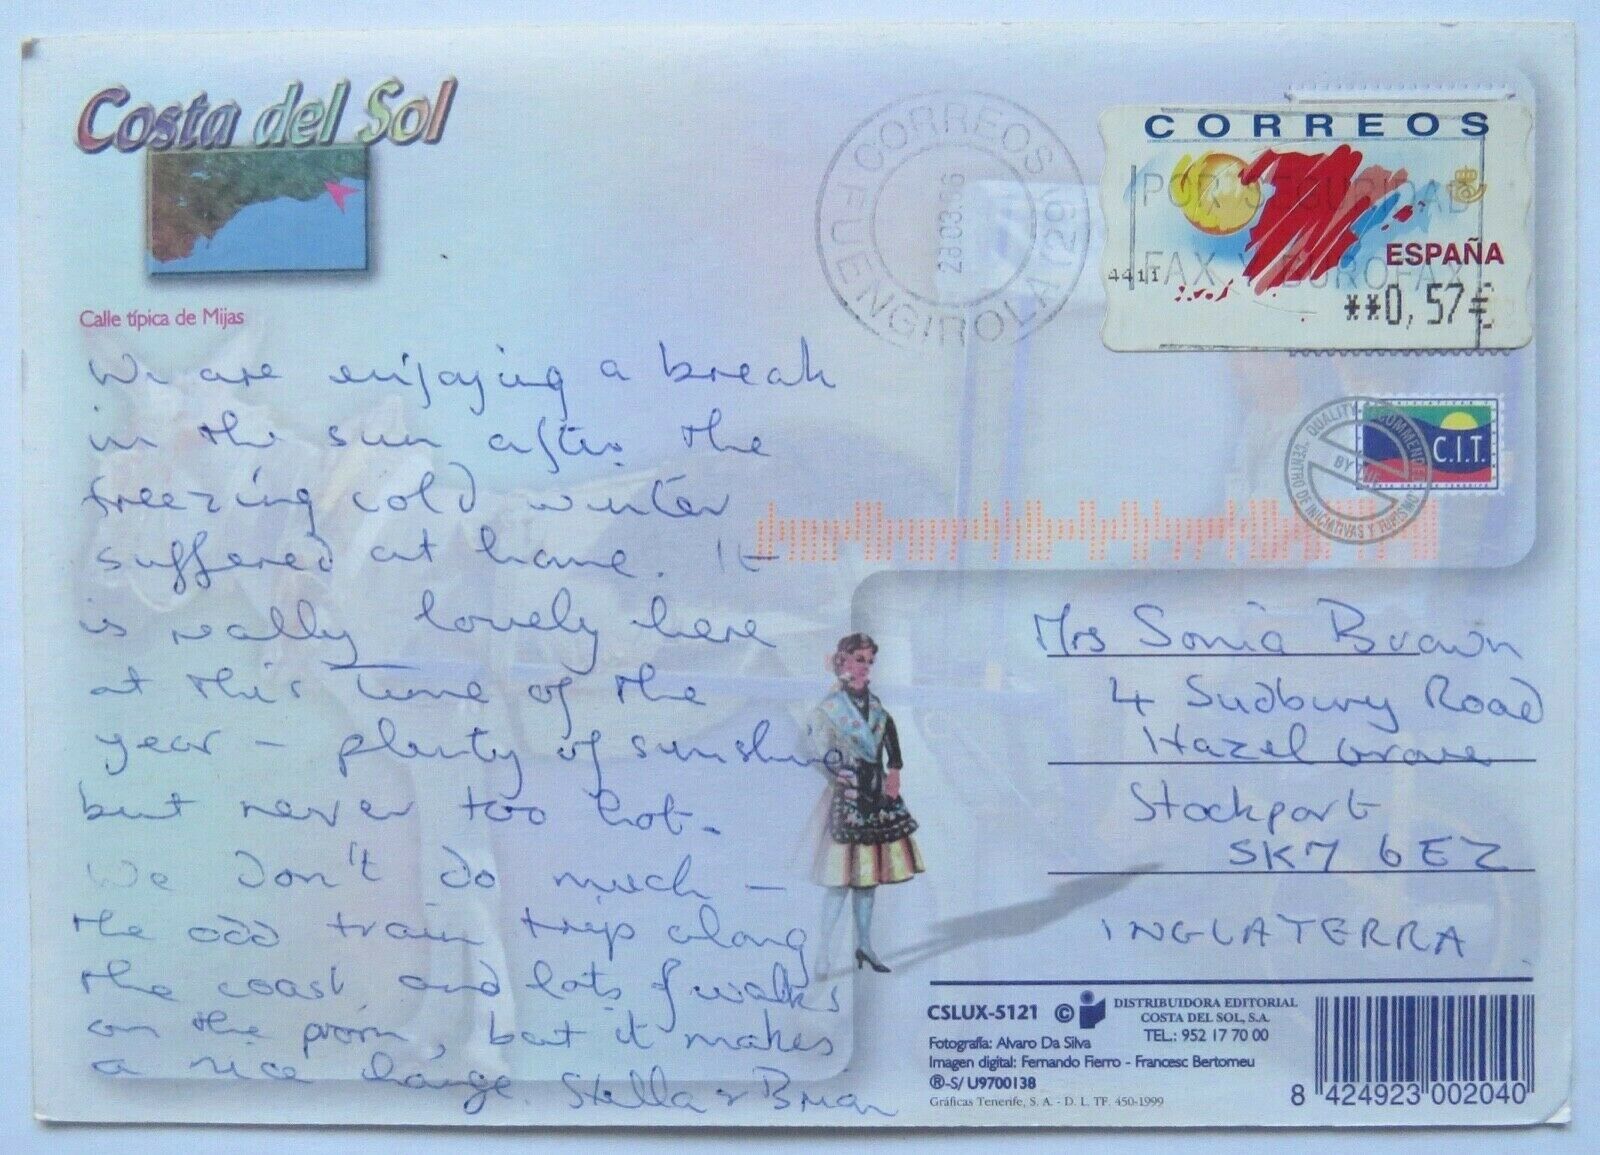 Costa del Sol
Calle típica de Mijas
We are enjoying a break
in the sun after the
freezing cold winter
suffered at home. It
is really lovely here
at this time of the
year - plenty of sunshine
but never too hot.
We don't do much -
the odd train trip along
the coast, and lots of walks
on the prom, but it makes
a nice change. Stella & Brian
CORREOS
FUENGIROLA (29)
28 03 06
CORREOS
POR SEGURIDAD
FAX Y BUROFAX
ESPAÑA
4411
**0,57€
QUALITY RECOMMENDED
BY THE
CENTRO DE INICIATIVAS Y TURISMO
C.I.T.
Mrs Sonia Brown
4 Sudbury Road
Hazel Grove
Stockport
SK7 6EZ
INGLATERRA
CSLUX-5121 ©
DISTRIBUIDORA EDITORIAL
COSTA DEL SOL, S.A.
TEL.: 952 17 70 00
Fotografía: Alvaro Da Silva
Imagen digital: Fernando Fierro - Francesc Bertomeu
®-S/ U9700138
Gráficas Tenerife, S. A. - D. L. TF. 450-1999
8 424923 002040